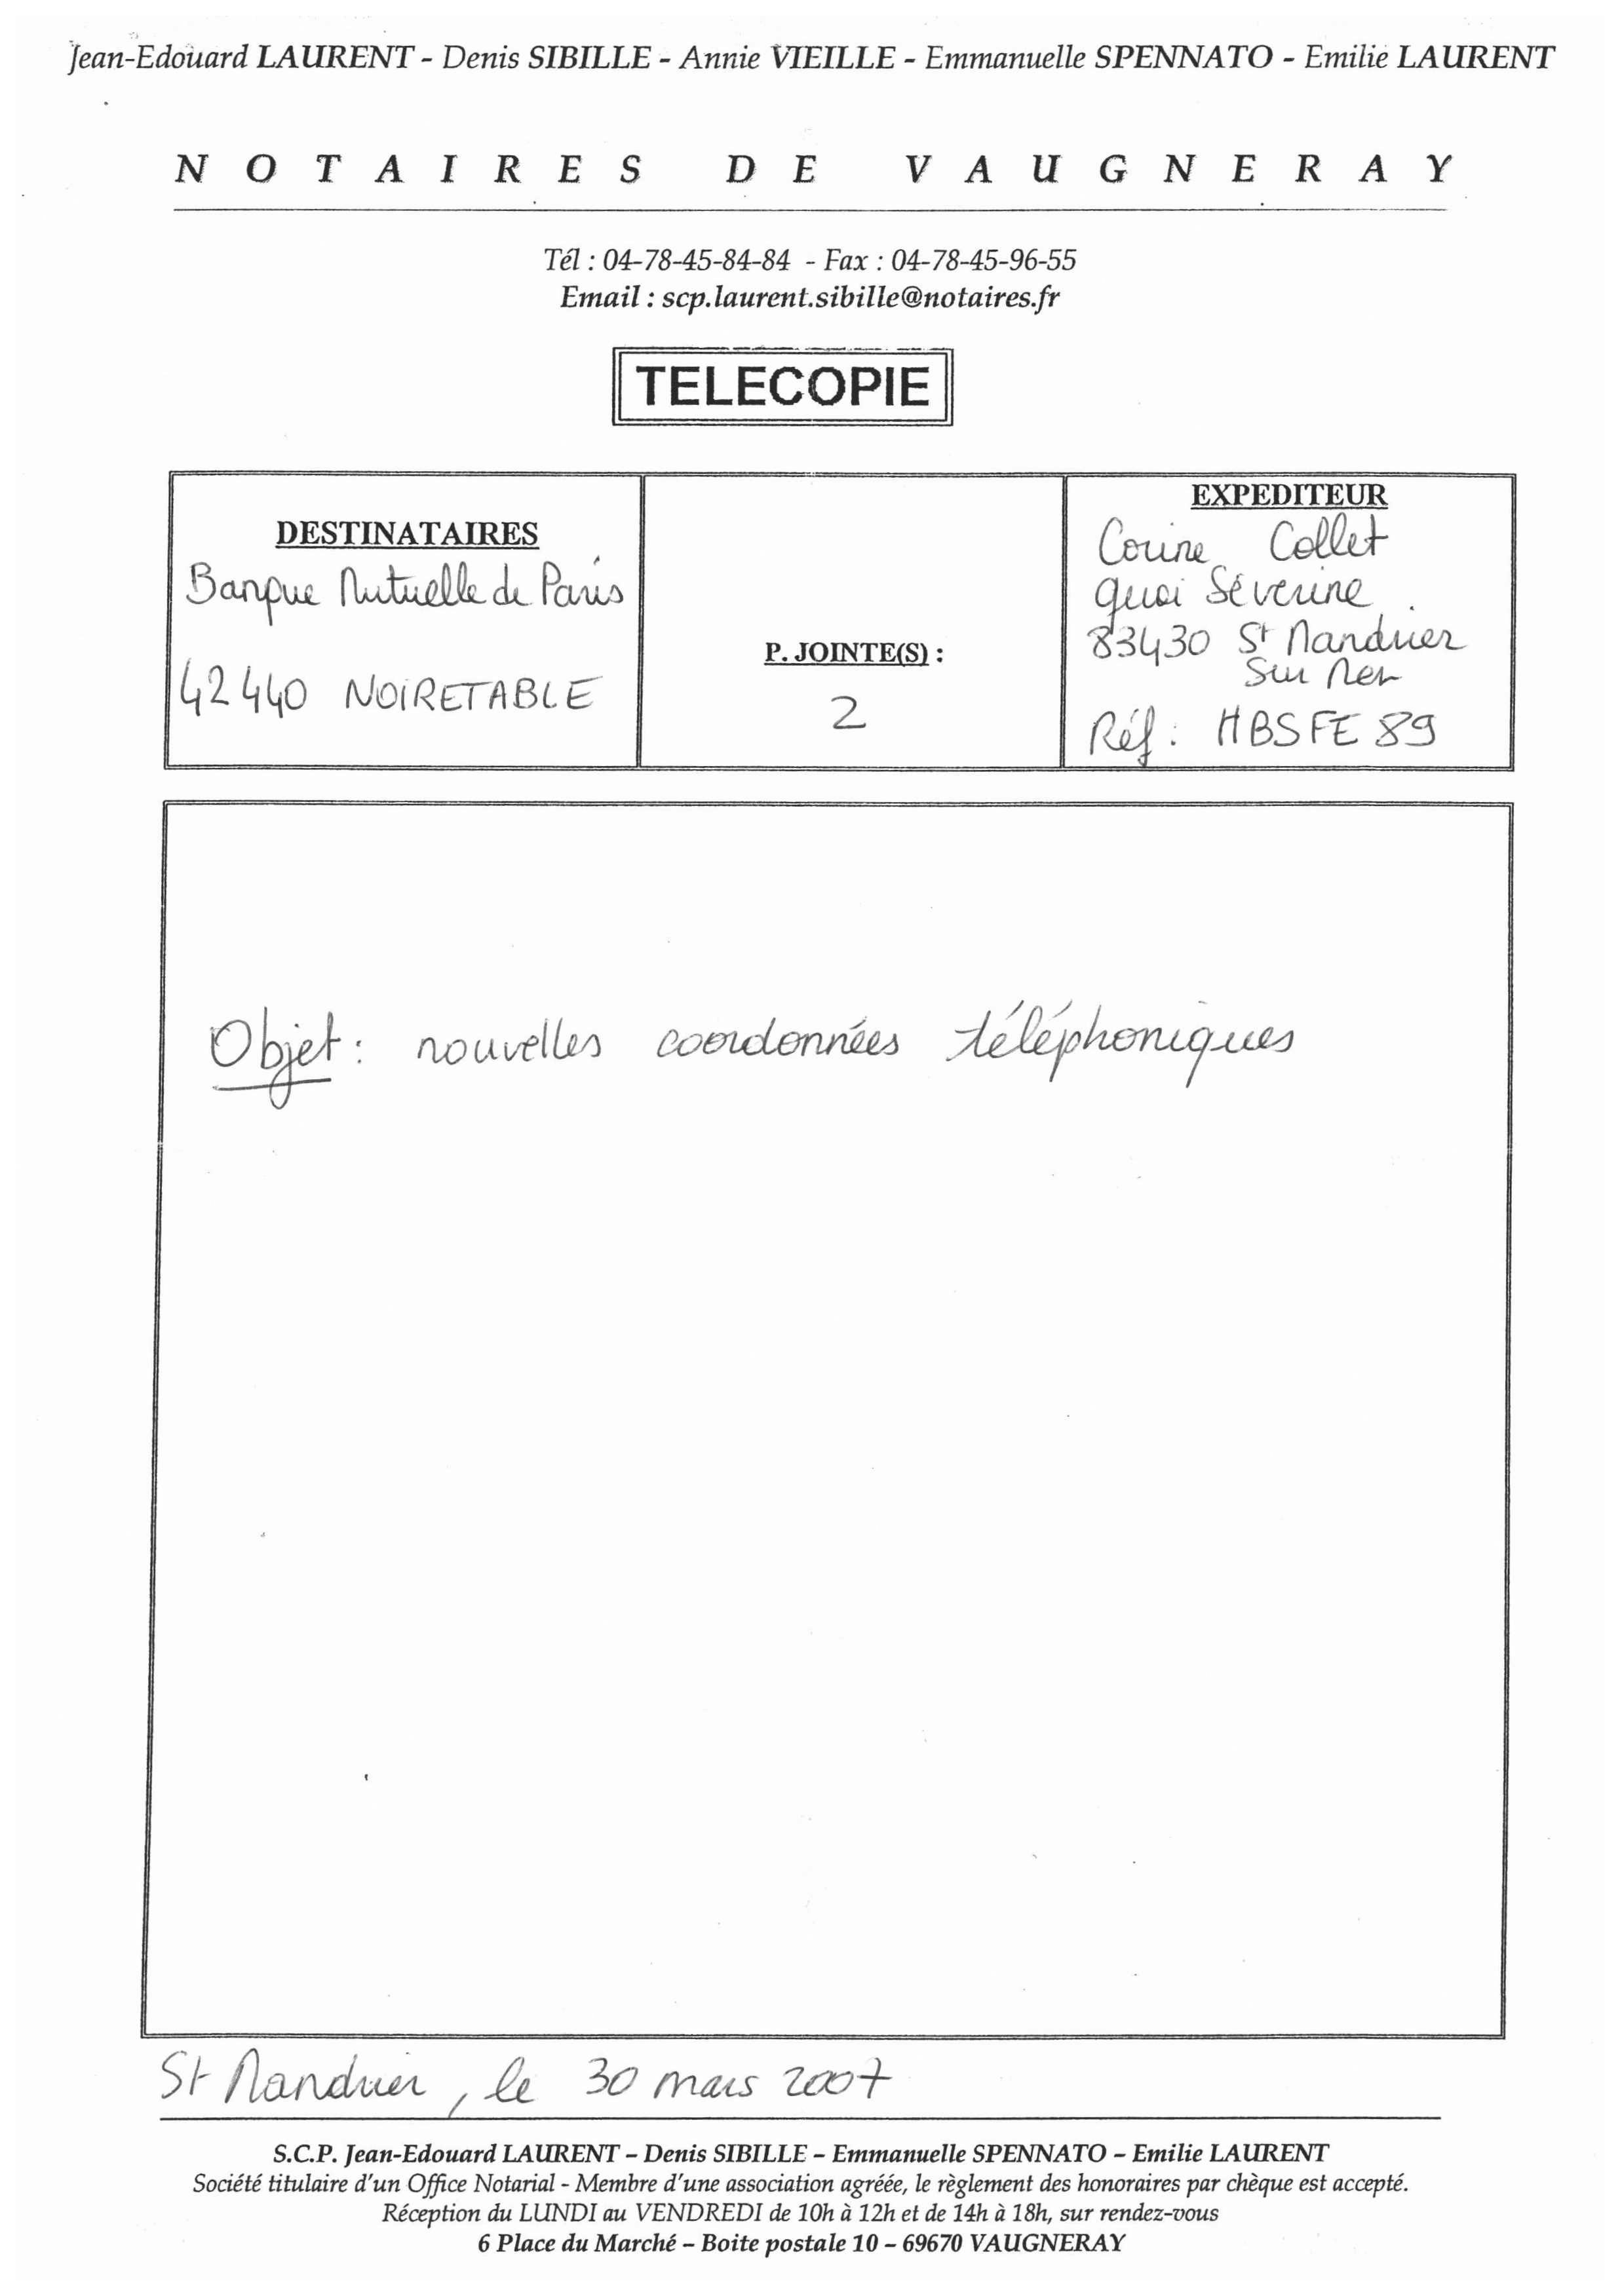 Jean-Edouard LAURENT - Denis SIBILLE - Annie VIEILLE - Emmanuelle SPENNATO - Emilie LAURENT
NOTAIRES DE VAUGNERAY
Tél : 04-78-45-84-84 - Fax : 04-78-45-96-55
Email : scp.laurent.sibille@notaires.fr
TELECOPIE
DESTINATAIRES
Banque Mutuelle de Paris
42440 NOIRETABLE
P. JOINTE(S) :
2
EXPEDITEUR
Corine Collet
quai Séverine
83430 St Mandrier
sur Mer
Réf : HBSFE 89
Objet : nouvelles coordonnées téléphoniques
St Mandrier, le 30 mars 2007
S.C.P. Jean-Edouard LAURENT – Denis SIBILLE – Emmanuelle SPENNATO – Emilie LAURENT
Société titulaire d'un Office Notarial - Membre d'une association agréée, le règlement des honoraires par chèque est accepté.
Réception du LUNDI au VENDREDI de 10h à 12h et de 14h à 18h, sur rendez-vous
6 Place du Marché – Boite postale 10 – 69670 VAUGNERAY